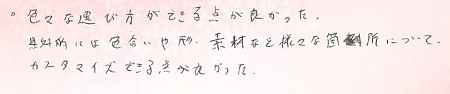 。色々な選び方ができる点が良かった.
具体的には色合いや形、素材など様々な箇所について.
カスタマイズできる点が良かった.